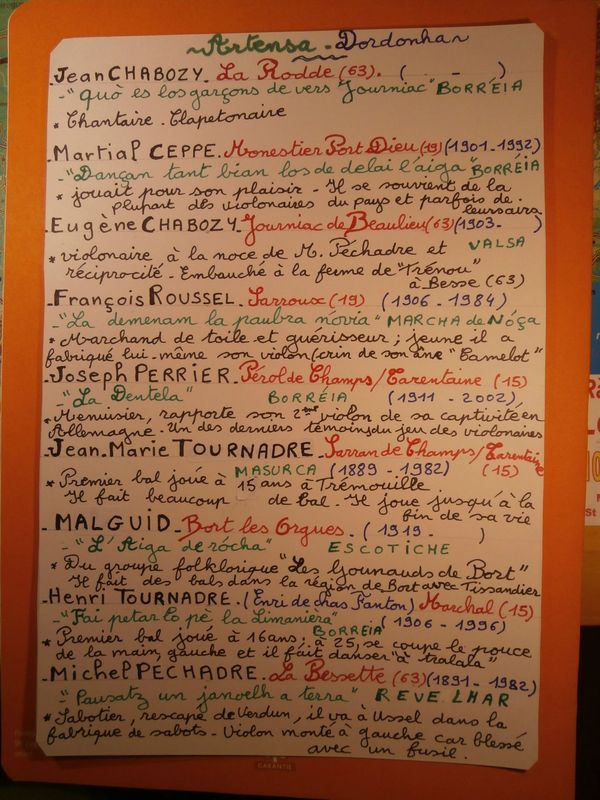 ~ Artensa - Dordonha ~
- Jean CHABOZY - La Rodde (63). ( - )
- "Quò es los garçons de vers Journiac" BORRÉIA
* Chantaire - Clapetonaire
- Martial CEPPE - Monestier Port Dieu (19) (1901-1992)
- "Dançan tant bian los de delai l'aiga" BORRÉIA
* jouait pour son plaisir - Il se souvient de la
plupart des violonaires du pays et parfois de
leurs airs
- Eugène CHABOZY - Journiac de Beaulieu (63) (1903- )
* violonaire à la noce de M. Péchadre et VALSA
réciprocité - Embauché à la ferme de "Trénou"
à Besse (63)
- François ROUSSEL - Sarroux (19) (1906 - 1984)
- "La demenam la paubra nòvia" MARCHA de NÓÇA
* Marchand de toile et guérisseur ; jeune il a
fabriqué lui-même son violon (crin de son âne "Camelot"
- Joseph PERRIER - Pérol de Champs/Tarentaine (15)
- "La Dentela" BORRÉIA (1911 - 2002)
* Menuisier, rapporte son 2ème violon de sa captivité en
Allemagne - Un des derniers témoins du jeu des violonaires
- Jean-Marie TOURNADRE - Sarran de Champs/Tarentaine
MASURCA (1889 - 1982) (15)
* Premier bal joué à 15 ans à Trémouille
Il fait beaucoup de bal - Il joue jusqu'à la
fin de sa vie
- MALGUID - Bort les Orgues - (1919 - )
- "L'Aiga de ròcha" ESCOTICHE
* Du groupe folklorique "Les Gounauds de Bort"
Il fait des bals dans la région de Bort avec Tissandier
- Henri TOURNADRE - (Enri de chas Fanton) Marchal (15)
- "Fai petar lo pè la Limanièra" (1906 - 1996)
BORRÉIA
* Premier bal joué à 16 ans ; à 25, se coupe le pouce
de la main gauche et il fait danser "à tralala"
- Michel PECHADRE - La Bessette (63) (1891 - 1982)
- "Pausatz un janvelh a terra" REVELHAR
* Sabotier, rescapé de Verdun, il va à Ussel dans la
fabrique de sabots - Violon monté à gauche car blessé
avec un fusil.
GARANTIE